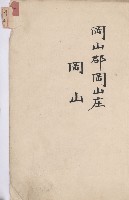 岡山郡岡山庄
岡山